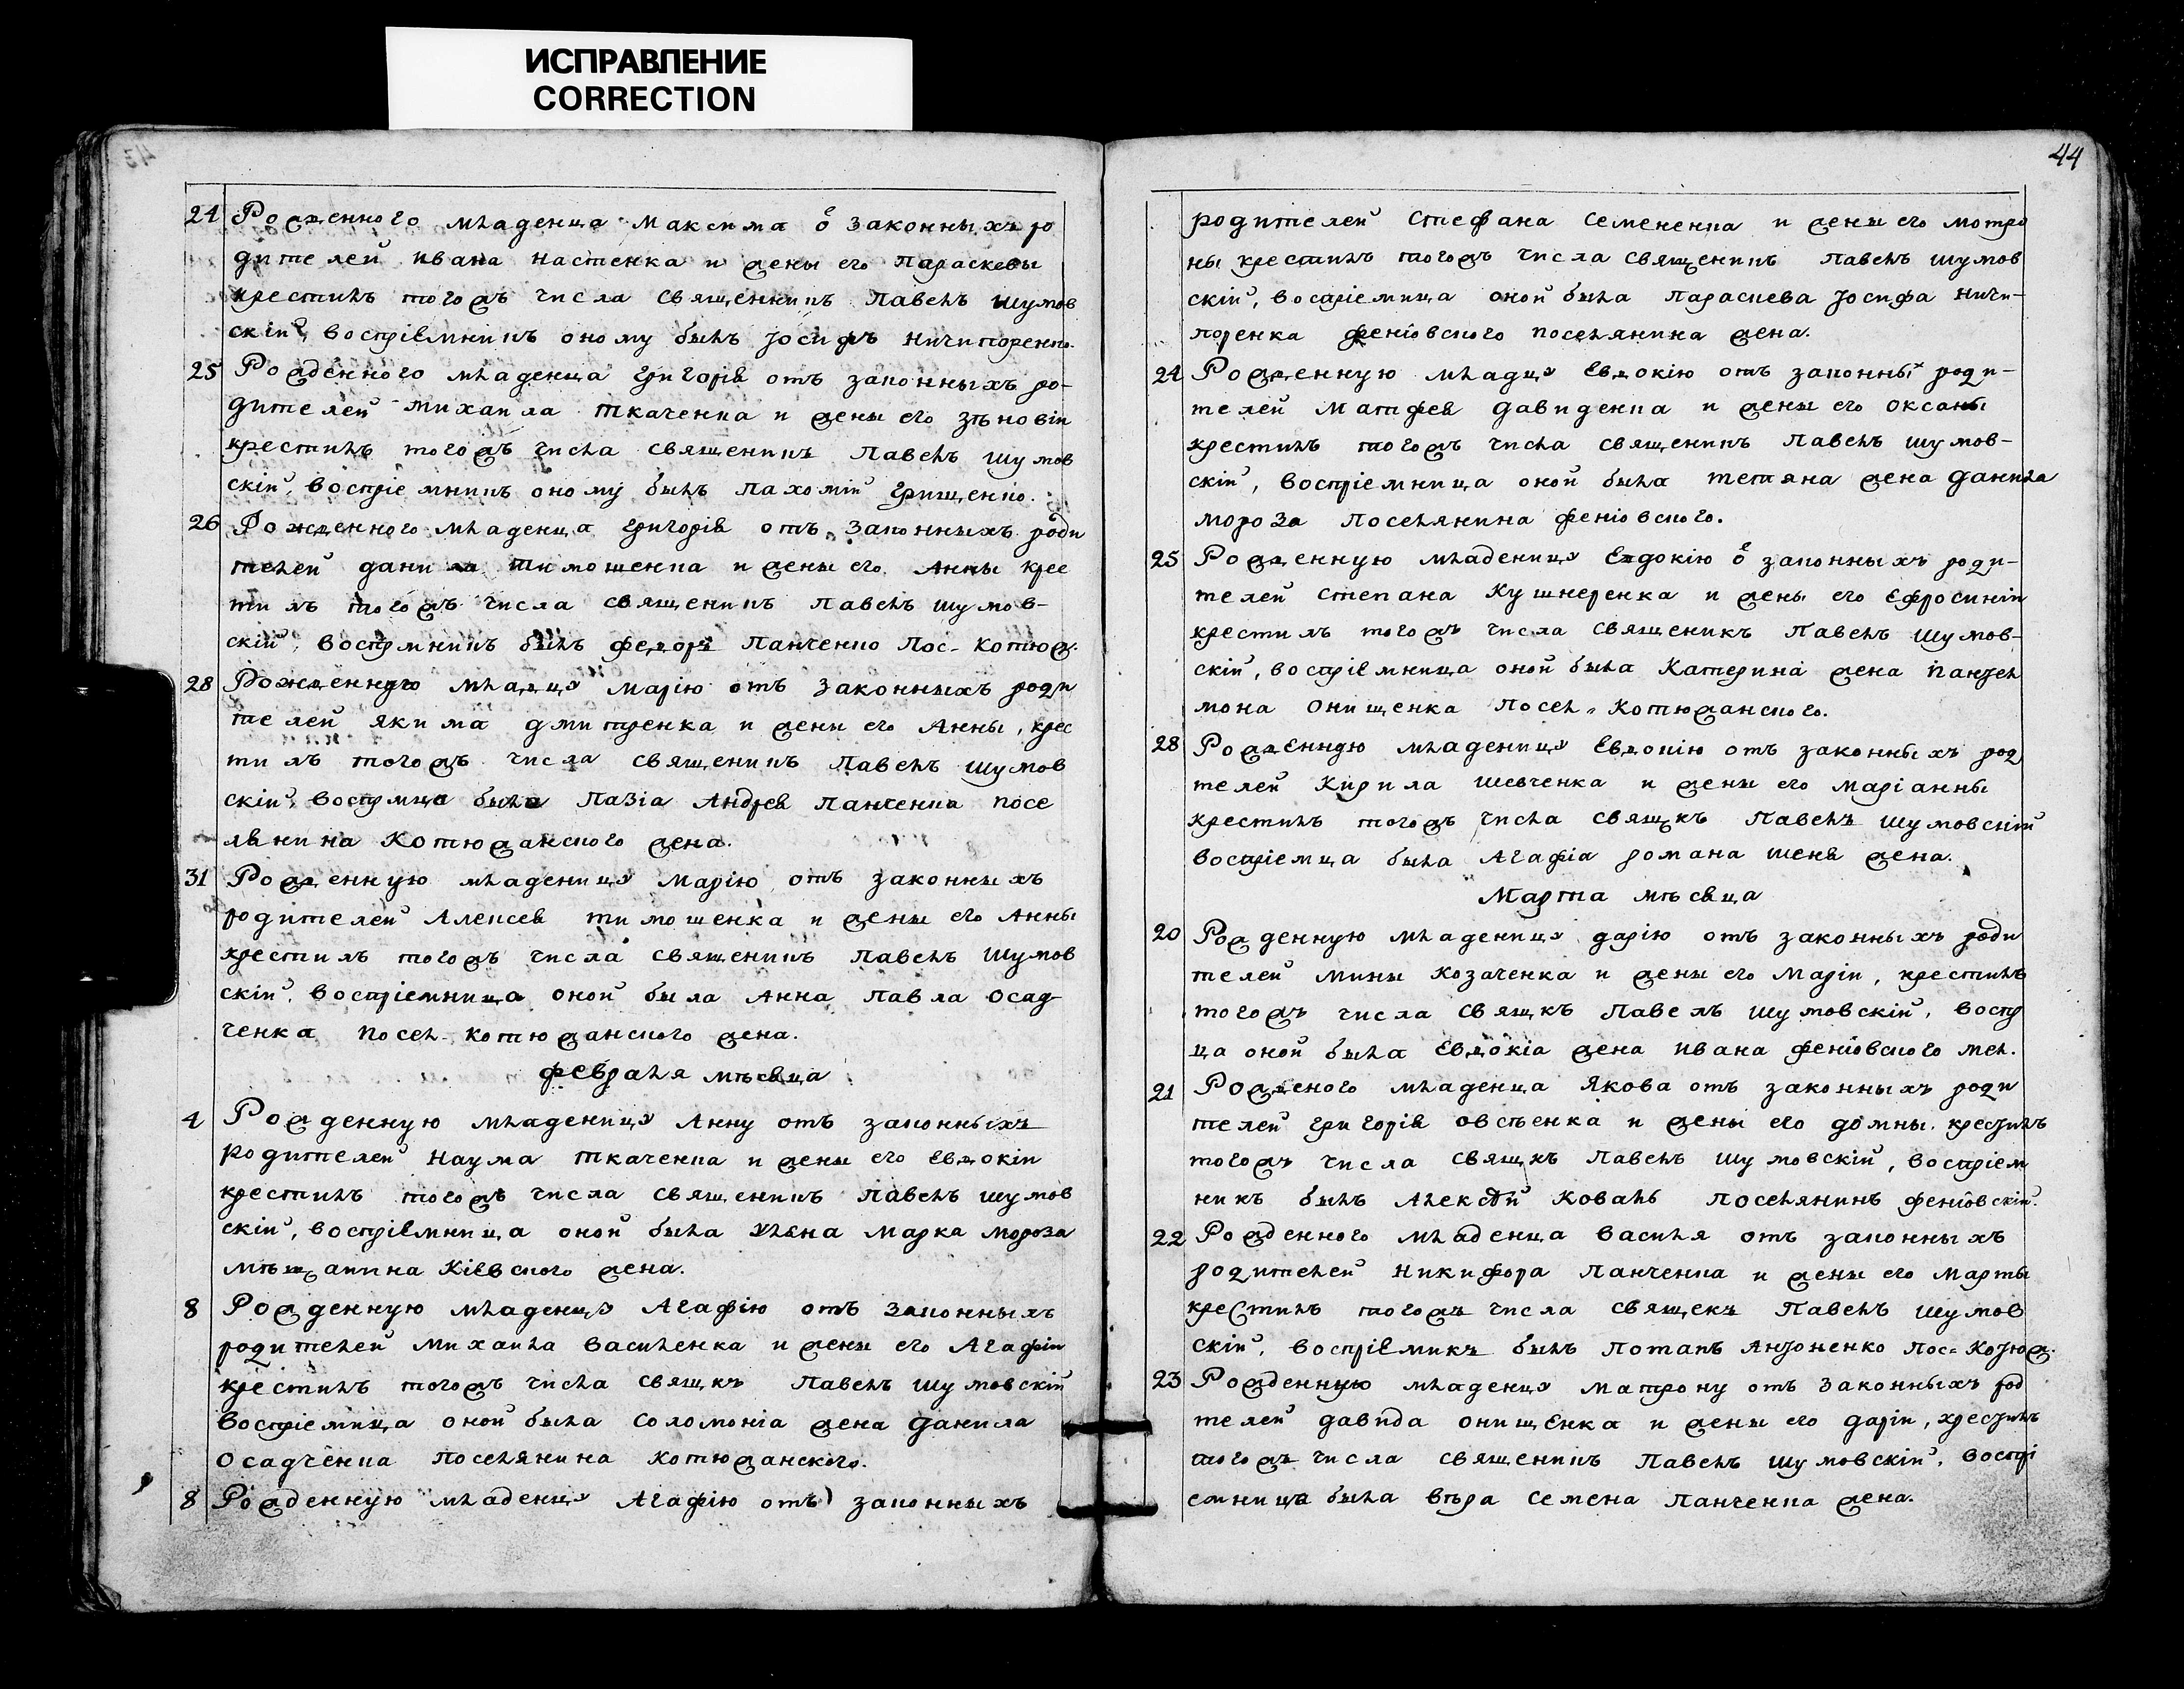 ИСПРАВЛЕНИЕ
CORRECTION
43
24 Рожденного младенца Максима ѿ законныхъ ро
дителей Ивана Настенка и жены его Параскевы
крестилъ тогожъ числа священникъ Павелъ Шумов
скій, воспріемникъ оному былъ Іосифъ Ничипоренко.
25 Рожденного младенца Григорія отъ законныхъ ро-
дителей Михаила Ткаченка и жены его Зѣновіи
крестилъ тогожъ числа священикъ Павелъ Шумов
скій, воспріемникъ оному былъ Пахомій Грищенко.
26 Рожденного младенца Григорія отъ законныхъ роди
телей Данила Тимошенка и жены его Анны крес
тилъ тогожъ числа священикъ Павелъ Шумов-
скій, воспрмникъ былъ Федоръ Панченко Пос- Котюж.
28 Рожденную младцу Марію отъ законныхъ роди
телей Якима Дмитренка и жены его Анны, крес
тилъ тогожъ числа священикъ Павелъ Шумов
скій, воспрмца была Пазіа Андрея Панченка посе
лянина Котюжанского жена.
31 Рожденную младеницу Марію отъ законныхъ
родителей Алексея Тимошенка и жены его Анны
крестилъ тогожъ числа священикъ Павелъ Шумов
скій, воспріемница оной была Анна Павла Осад
ченка посел- Котюжанского жена.
Февраля мѣсяца
4 Рожденную младеницу Анну отъ законныхъ
родителей Наума Ткаченка и жены его Евдокіи
крестилъ тогожъ числа священикъ Павелъ Шумов
скій, воспріемница оной была Ульяна Марка Мороза
мѣщанина Кіевского жена.
8 Рожденную младенцу Агафію отъ законныхъ
родителей Михаила Василенка и жены его Агафіи
крестилъ тогожъ числа свящкъ Павелъ Шумовскій
воспріемица оной была Соломоніа жена Данила
Осадченка Поселянина Котюжанского.
8 Рожденную младенцу Агафію отъ законныхъ
44
родителей Стефана Семененка и жены его Мотро
ны крестилъ тогожъ числа священикъ Павелъ Шумов
скій, воспріемица оной была Параскева Іосифа Ничи-
поренка Феніовского поселянина жена.
24 Рожденную младцу Евдокію отъ законных роди-
телей Матфея Давиденка и жены его Оксаны
крестилъ тогожъ числа священикъ Павелъ Шумов-
скій, воспріемница оной была Тетяна жена Данила
Мороза Поселянина Феніовского.
25 Рожденную младеницу Евдокію ѿ законныхъ роди-
телей Степана Кушнеренка и жены его Ефросиніи
крестилъ тогожъ числа священикъ Павелъ Шумов-
скій, воспріемница оной была Катерина жена Пантел
мона Онищенка Посел- Котюжанского.
28 Рожденную младеницу Евдокію отъ законныхъ род
телей Кирила Шевченка и жены его Маріанны
крестилъ тогожъ числа свящкъ Павелъ Шумовскій
воспріемца была Агафіа Романа Шеня жена.
Марта мѣсяца
20 Рожденную младеницу Дарію отъ законныхъ роди
телей Мины Козаченка и жены его Маріи, крестилъ
тогожъ числа свящкъ Павелъ Шумовскій, воспр
ца оной была Евдокіа жена Ивана Феніовского мел.
21 Рожденого младенца Якова отъ законныхъ роди
телей Григорія Овсѣенка и жены его Домны. крестилъ
тогожъ числа свящкъ Павелъ Шумовскій, воспріем
никъ былъ Алексѣй Коваль Поселянинъ Феніовскій.
22 Рожденного младенца Василя отъ законныхъ
родителей Никифора Панченка и жены его Марты
крестилъ тогожъ числа свящекъ Павелъ Шумов
скій, воспріемикъ былъ Потапъ Антоненко Пос= Котюж.
23 Рожденную младенцу Матрону отъ законныхъ род
телей Давида Онищенка и жены его Даріи, крестилъ
тогожъ числа священикъ Павелъ Шумовскій, воспрі
емница была Вѣра Семена Панченка жена.